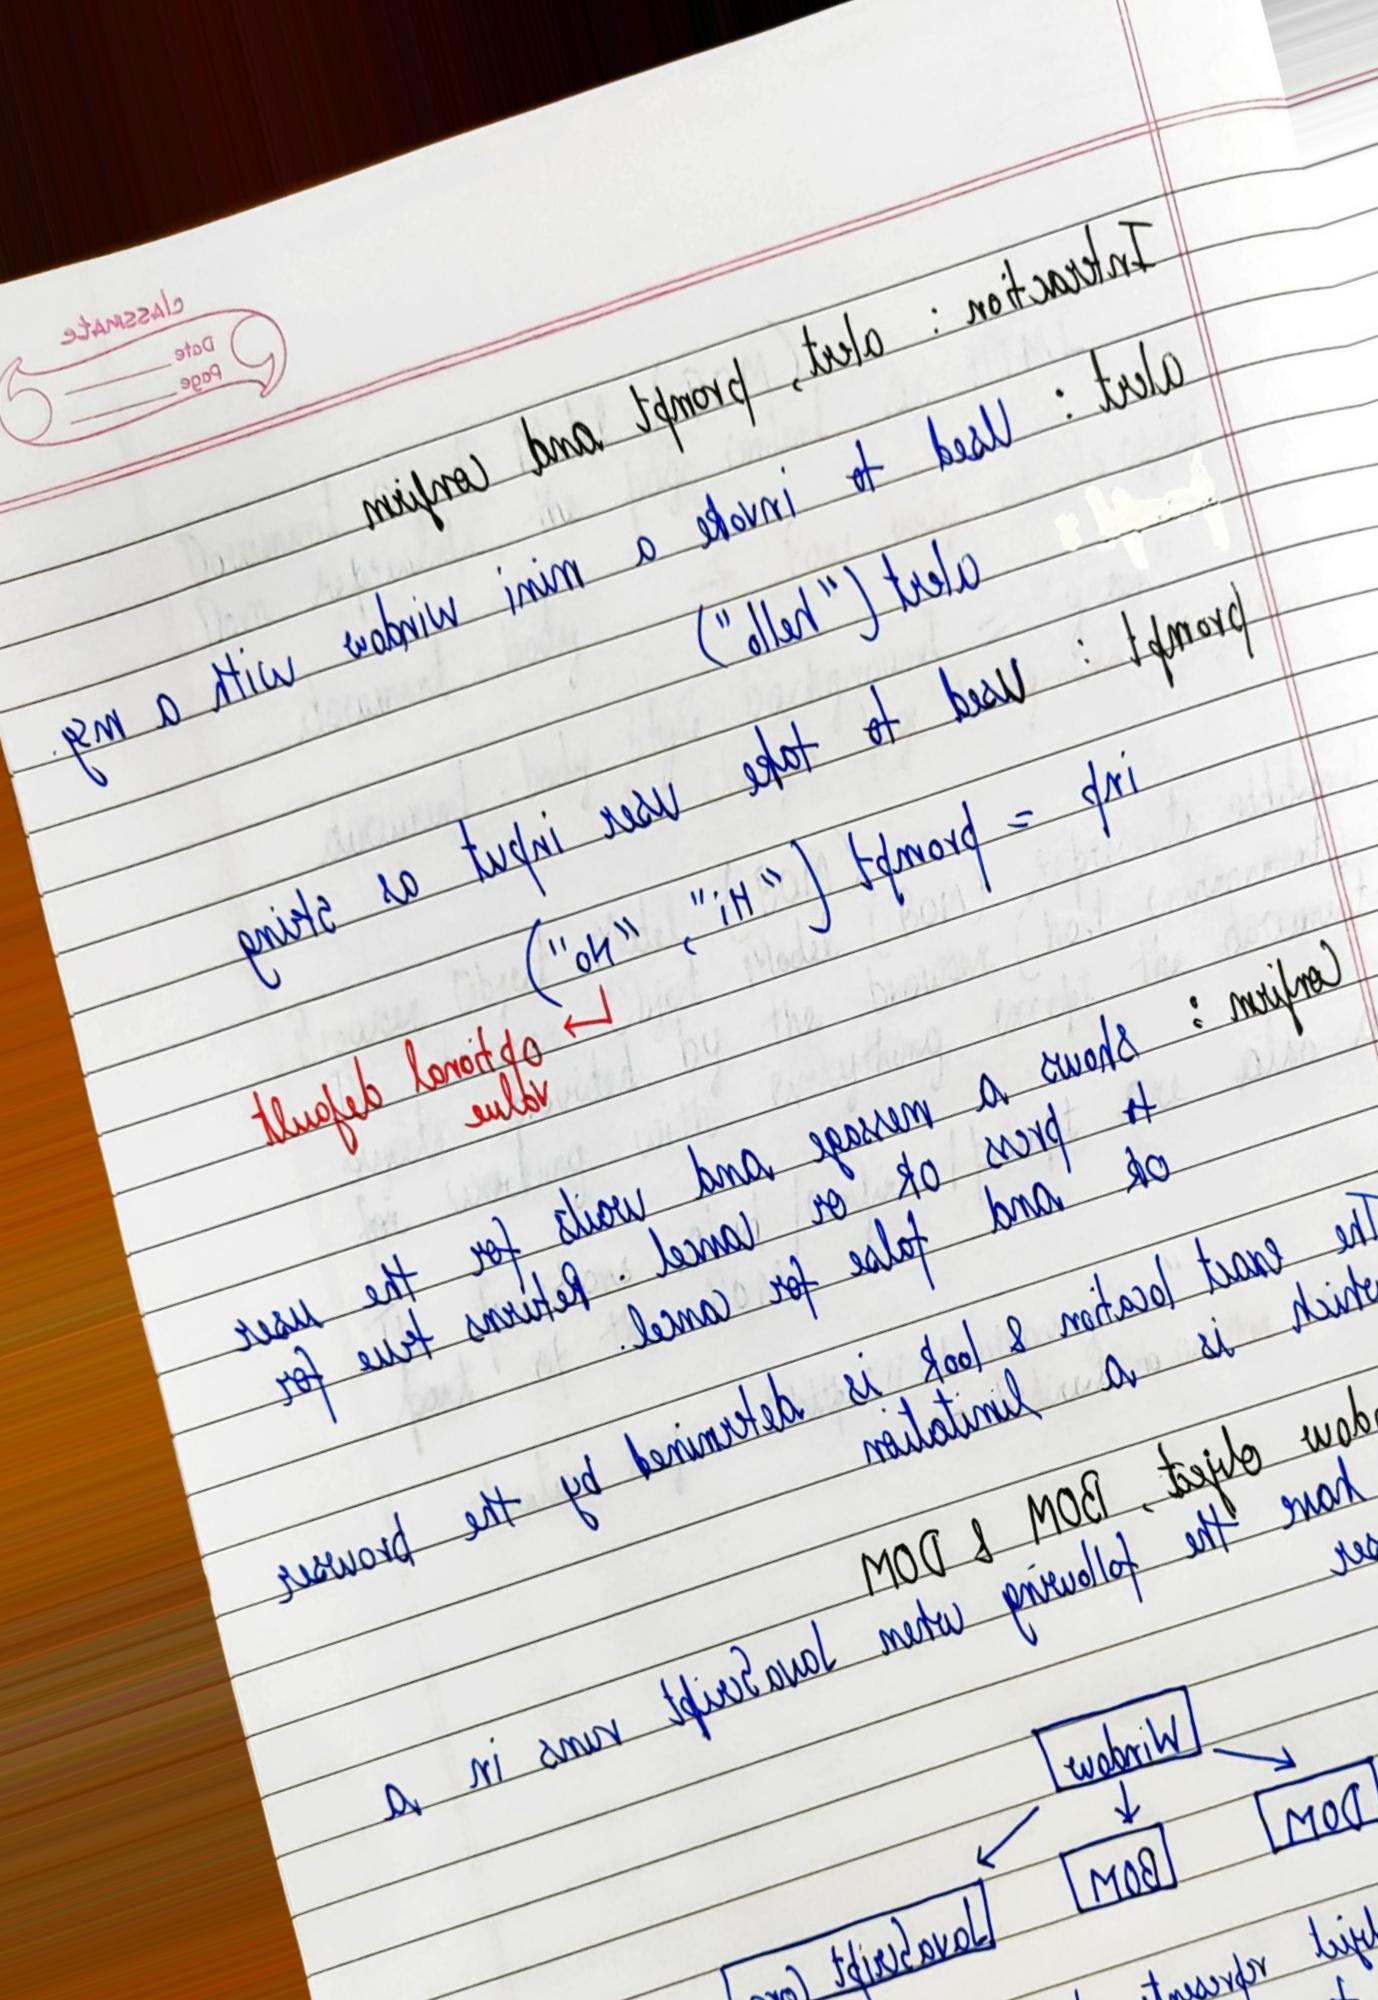 classmate
Date
Page
Interaction : alert, prompt and confirm
alert : Used to invoke a mini window with a msg.
alert ("hello")
prompt : Used to take user input as string
inp = prompt ("Hi", "No")
optional default
value
confirm : shows a message and waits for the user
to press ok or cancel. Returns true for
ok and false for cancel.
The exact location & look is determined by the browser
which is a limitation
dow object, BOM & DOM
have the following when JavaScript runs in a
ser
Window
DOM
BOM
JavaScript Core
bject represent